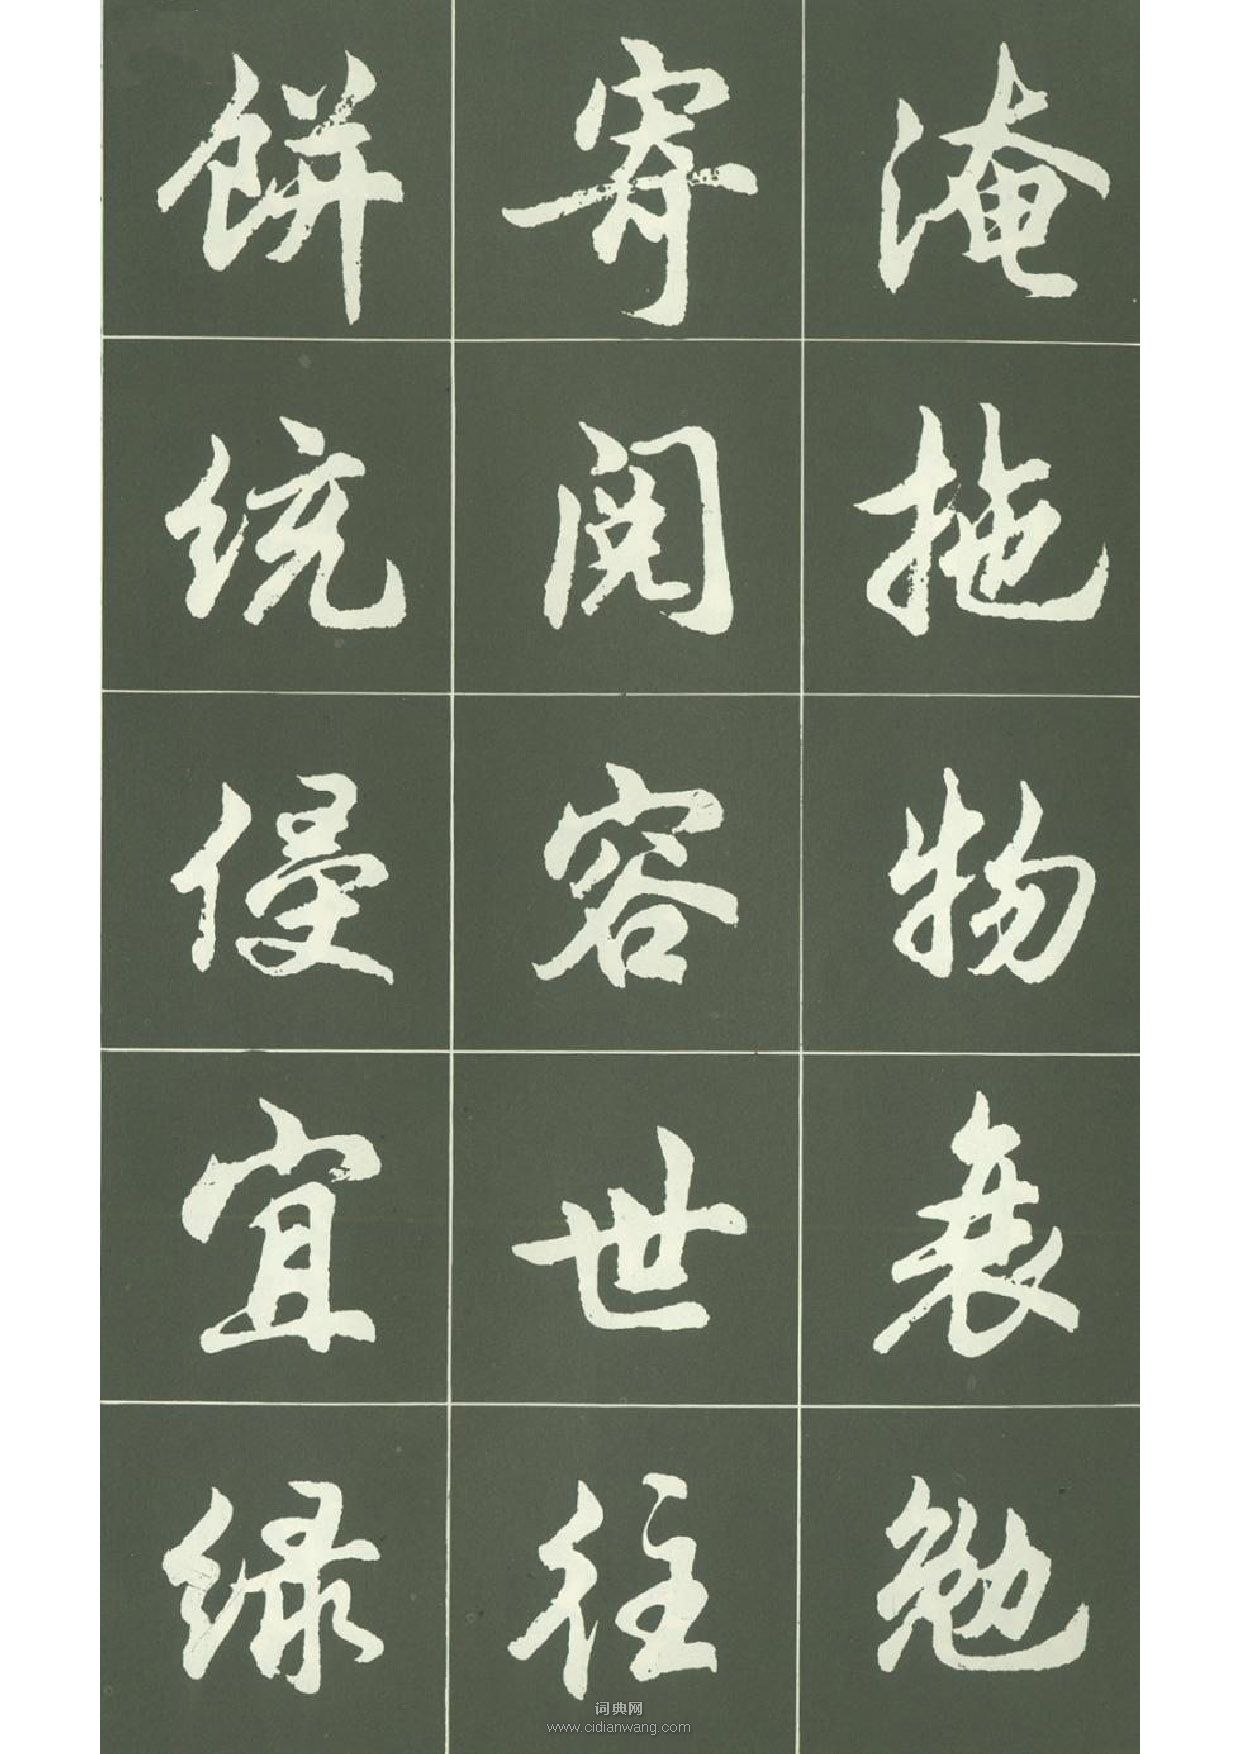 淹拖物衰勉
寄阅容世往
餅统侵宜绿
词典网
www.cidianwang.com